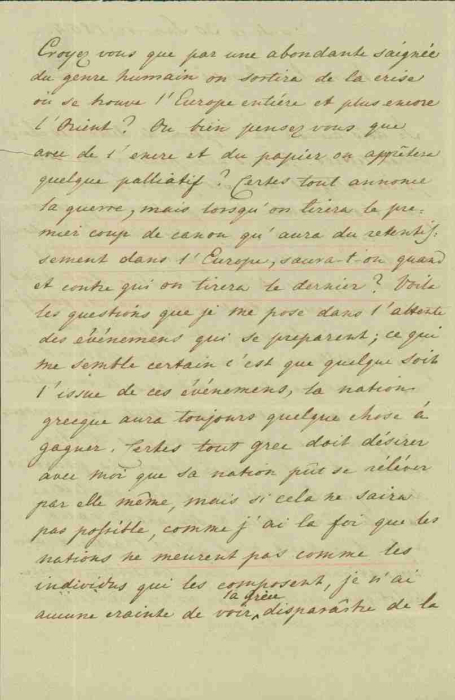 Croyez vous que par une abondante saignée
du genre humain on sortira de la crise
où se trouve l'Europe entiére et plus encore
l'Orient? Ou bien pensez vous que
avec de l'encre et du papier on apprêtera
quelque palliatif? Certes tout annonce
la guerre, mais lorsqu'on tirera le pre-
mier coup de canon qu'aura du retentis-
sement dans l'Europe, saura-t-on quand
et contre qui on tirera le dernier? Voila
les questions que je me pose dans l'attente
des événemens qui se preparent; ce qui
me semble certain c'est que quelque soit
l'issue de ces événemens, la nation
grecque aura toujours quelque chose à
gagner. Certes tout grec doit désirer
avec moi que sa nation pût se réléver
par elle même, mais si cela ne saira
pas possible, comme j'ai la foi que les
nations ne meurent pas comme les
individus qui les composent, je n'ai
aucune crainte de voir la grèce disparâitre de la